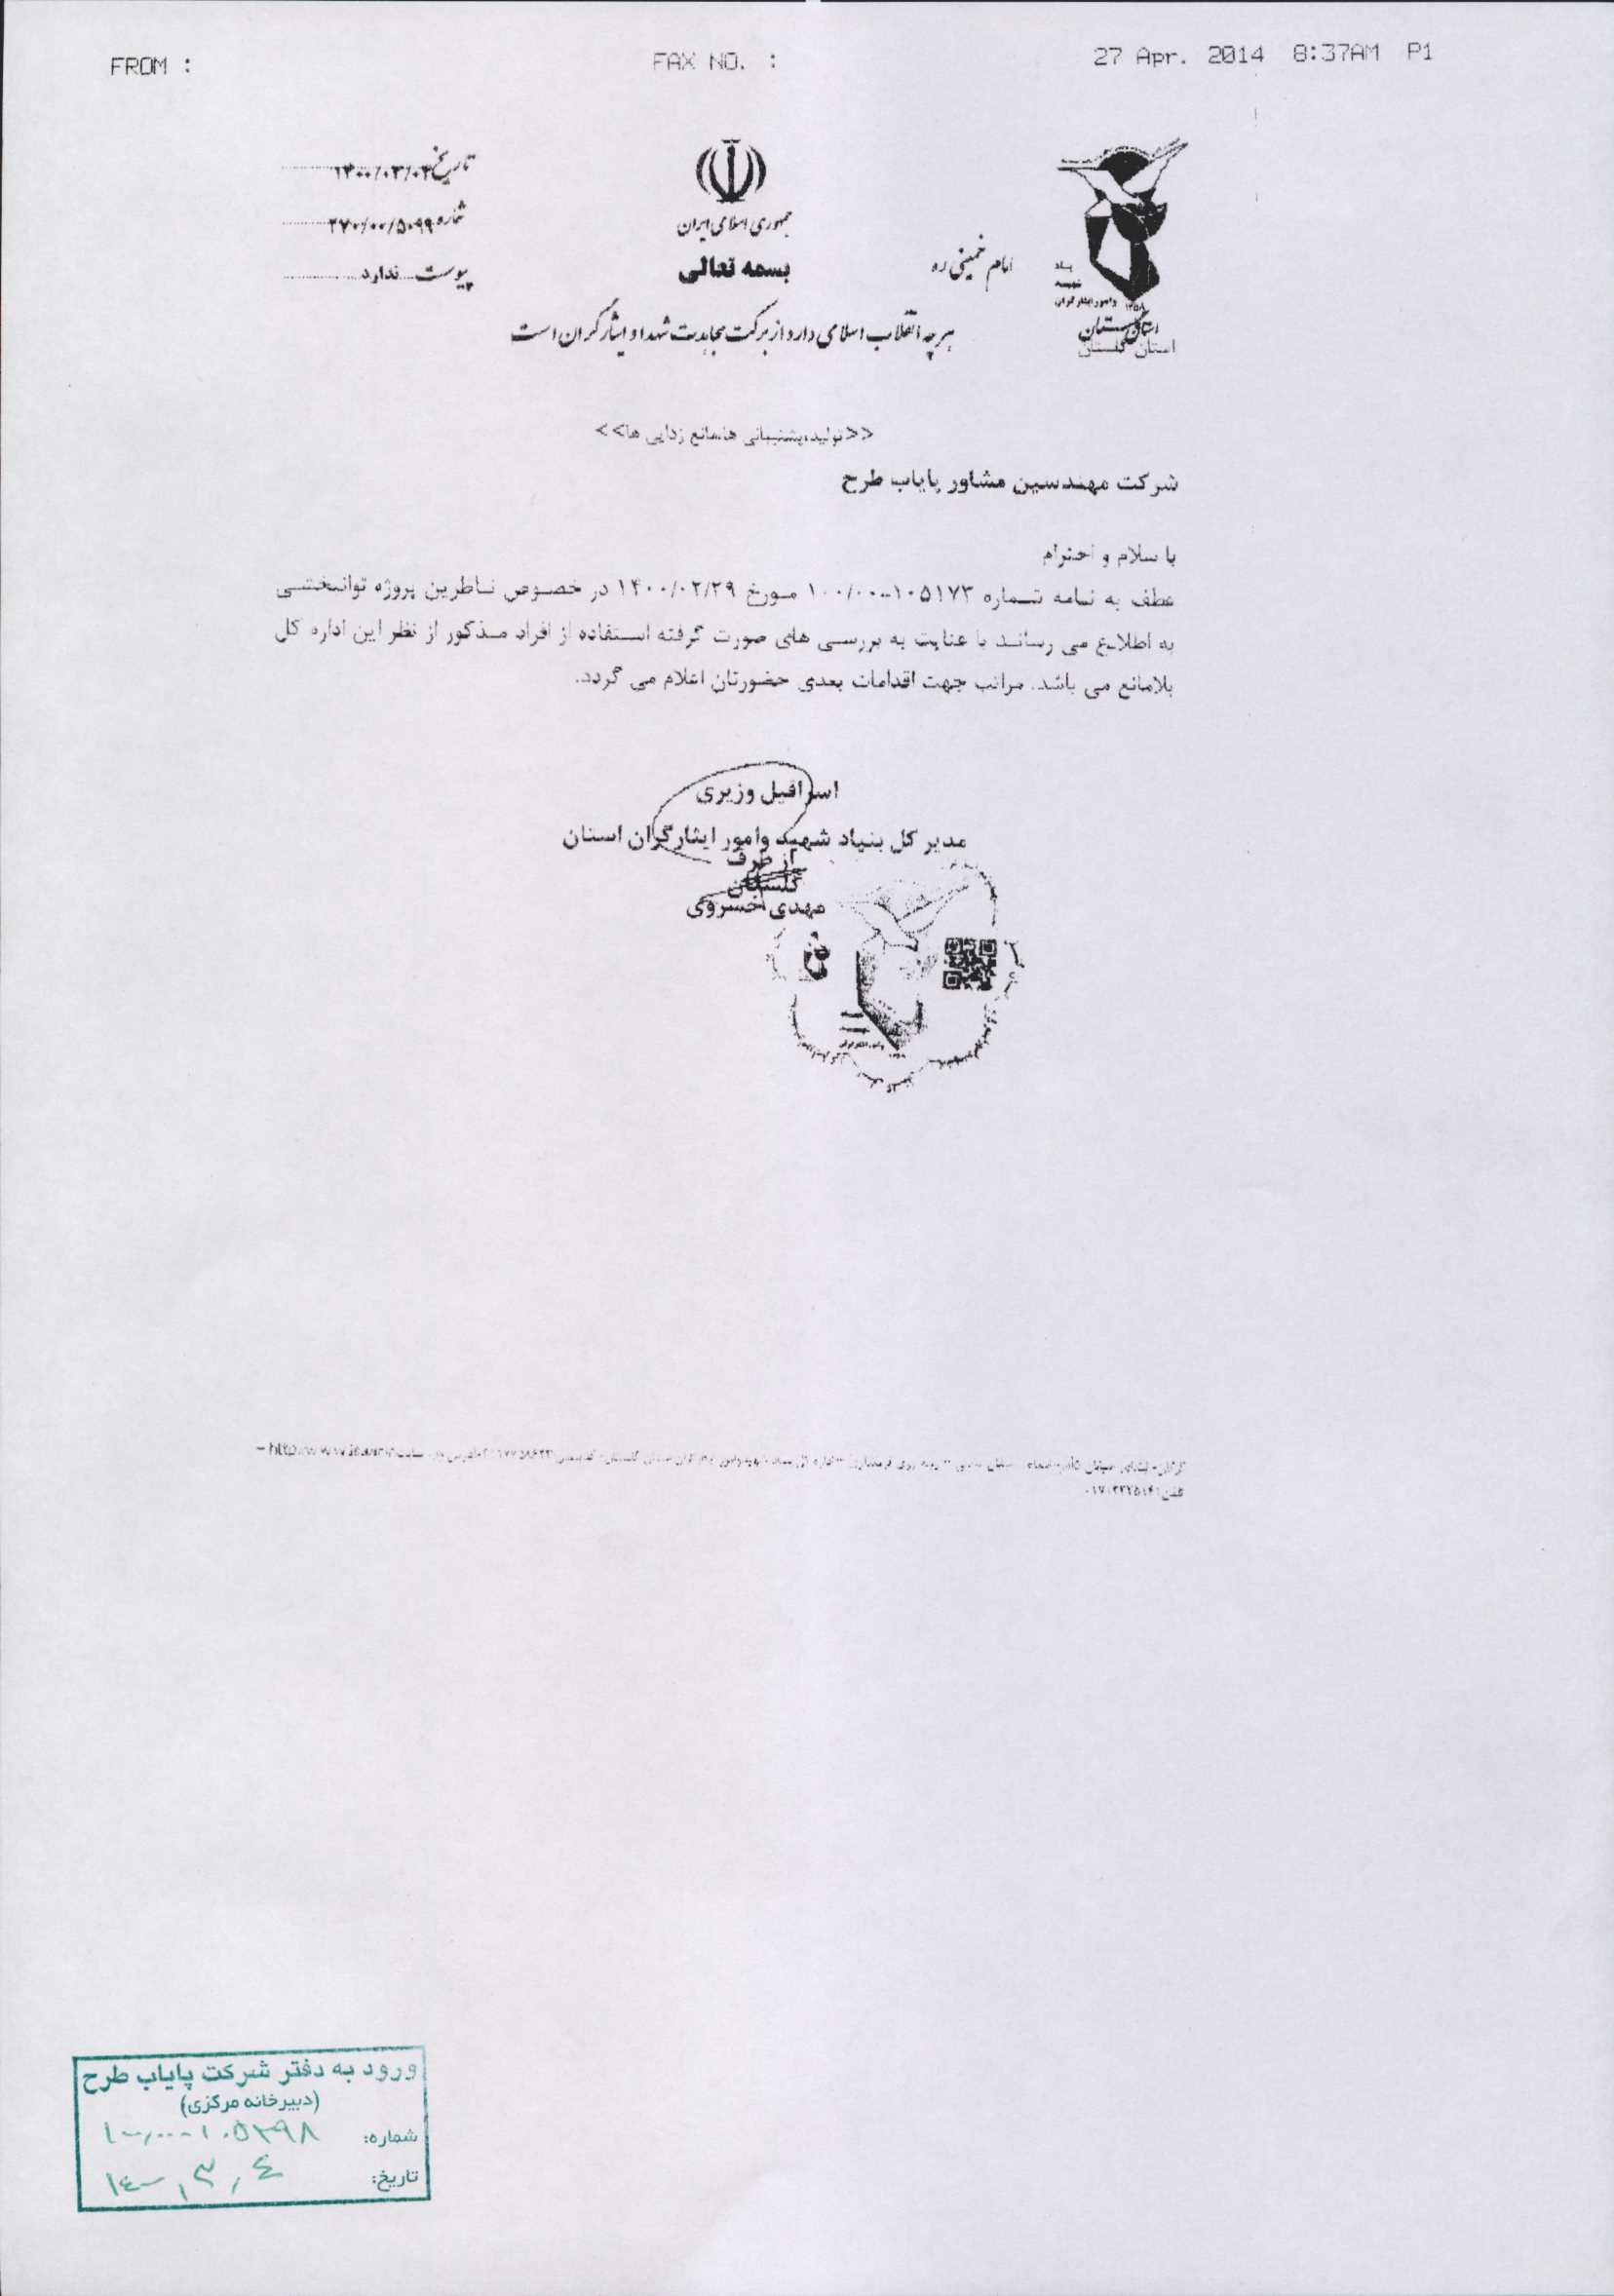 FROM :
FAX NO. :
27 Apr. 2014 8:37AM P1
تاریخ ۱۴۰۰/۰۳/۰۴
شماره ۲۷۰/۰۰/۵۰۹۹
پیوست ندارد
جمهوری اسلامی ایران
بسمه تعالی
امام خمینی ره
بنیاد
شهید
وامور ایثارگران
۱۳۵۸
استان گلستان
استان گلستان
هر چه انقلاب اسلامی دارد از برکت مجاهدت شهدا و ایثارگران است
<<تولید،پشتیبانی ها،مانع زدایی ها>>
شرکت مهندسین مشاور پایاب طرح
با سلام و احترام
عطف به نامه شماره ۱۰۵۱۷۳-۱۰۰/۰۰ مورخ ۱۴۰۰/۰۲/۲۹ در خصوص ناظرین پروژه توانبخشی
به اطلاع می رساند با عنایت به بررسی های صورت گرفته استفاده از افراد مذکور از نظر این اداره کل
بلامانع می باشد. مراتب جهت اقدامات بعدی حضورتان اعلام می گردد.
اسرافیل وزیری
مدیر کل بنیاد شهید وامور ایثارگران استان
از طرف
گلستان
مهدی خسروی
ورود به دفتر شرکت پایاب طرح
(دبیرخانه مرکزی)
شماره: ۱۰۰/۰۰-۱۰۵۳۹۸
تاریخ: ۱۴۰۰/۳/۴